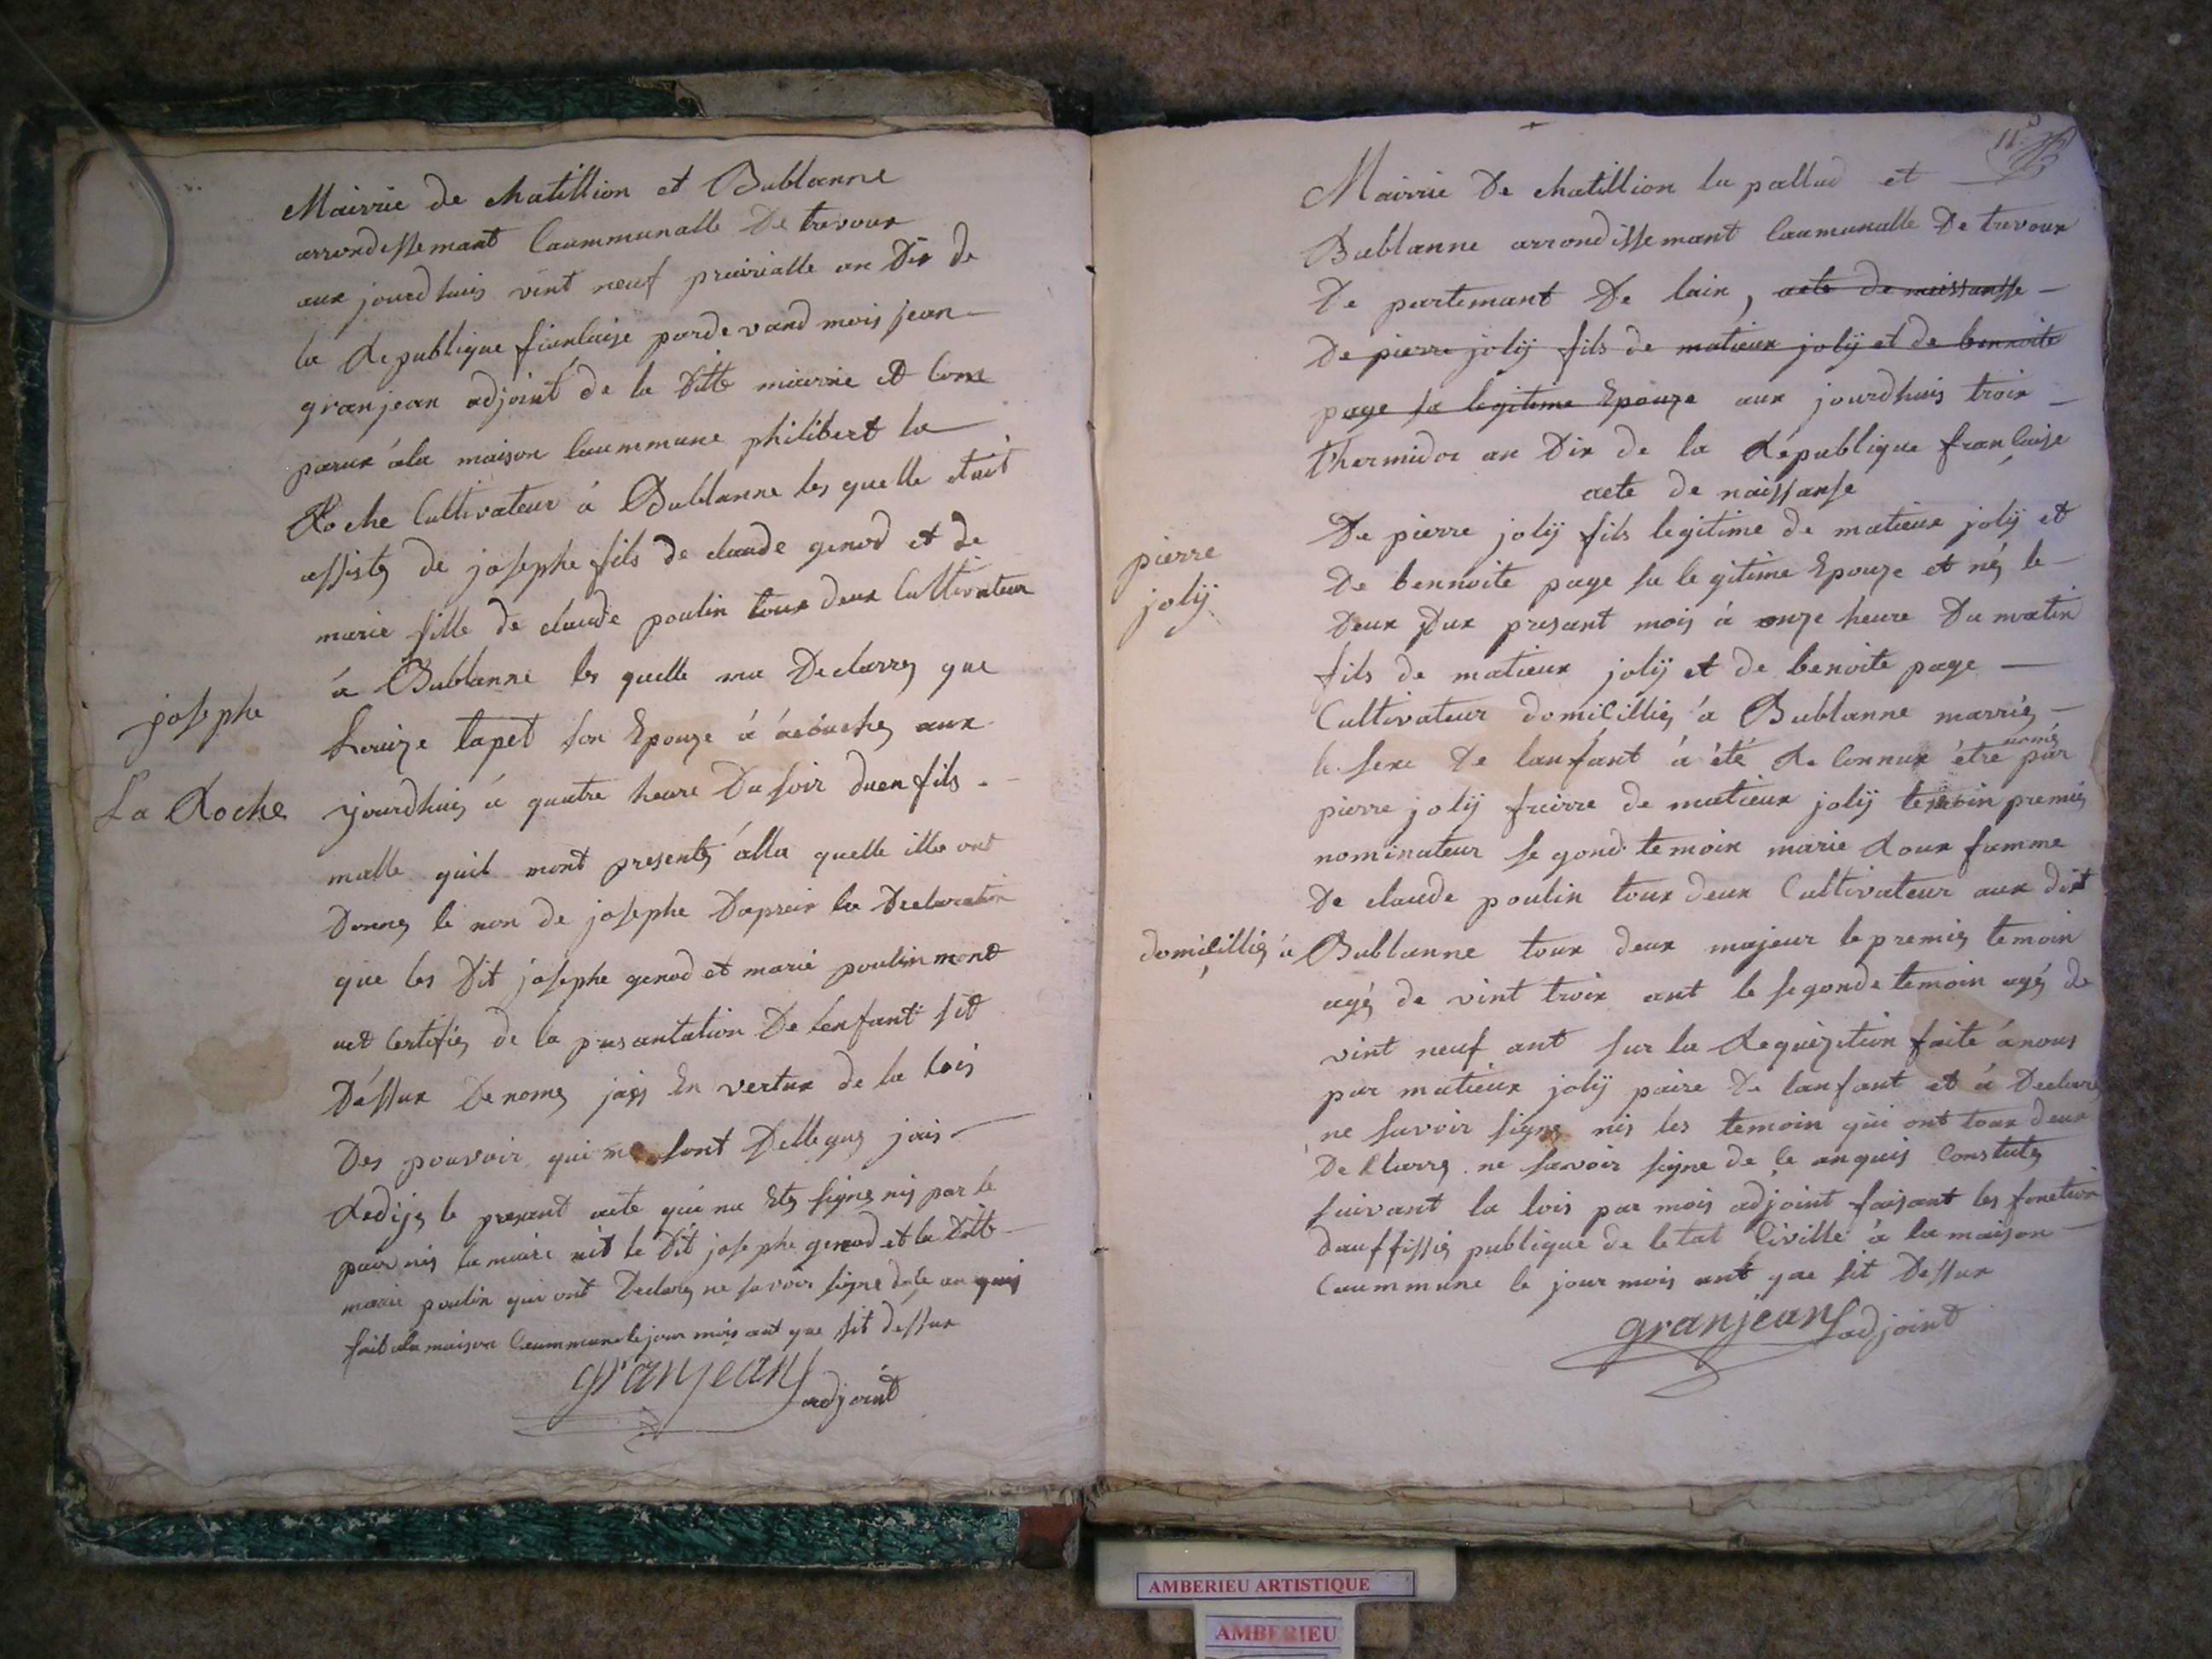 Mairrie de chatillion et Bublanne
arrondissemant Caummunalle De trevoux
aux jourdhuis vint neuf prairialle an Dix de
la Republique francaise pardevand mois jean
granjean adjoint de la Ditte mairrie et Com
parux àla maison Caummune philibert la
Roche Cultivateur à Bublanne les quelle etait
assistes de josephe fils de claude genod et de
marie fille de claude poulin toux deux Cultivateur
à Bublanne les quelle ma Declarrés que
josephe
La Roche
Louize tapet son Epouze à acouches aux
jourdhuis à quatre heure Du soir duen fils
malle quil mont presentes álla quelle illes ont
Donnes le non de josephe Daprair la Declaration
que les Dit josephe genod et marie poulin mont
uit Certifies de la presantation De lenfant sit
Dessux Denomes jais En vertux de la lois
Des pouvoir qui me sont Dellegues jais
Rediges le presant acte qui na Etes signes nis par le
pair nis la maire nit le Dit josephe genod et la Ditte
marie poulin qui ont Declares ne savoir signe de ce an quis
fait ala maison Caummune le jour mois ant que sit dessux
granjean adjoint
11
Mairrie De chatillion la pallud et
Bublanne arrondissemant Caumunalle De trevoux
De partemant De lain, acte de naissansse
De pierre jolij fils de matieux jolij et de bennoite
page sa legitime Epouze aux jourdhuis troix
thermidor an Dix de la République francaise
acte de naissanse
pierre
jolij
De pierre jolij fils legitime de matieux jolij et
De bennoite page sa legitime Epouze et nés le
Deux Dux presant mois à onze heure Du matin
fils de matieux jolij et de benoite page
Cultivateur domicillies à Bublanne marriés
le sexe De lanfant à été Re Connux être només par
pierre jolij frairre de matieux jolij temoin premies
nominateur segond temoin marie Roux famme
De claude poulin toux deux Cultivateur aux dit
domicillies à Bublanne toux deux majeur le premies temoin
agés de vint troix ant le segonde temoin agés de
vint neuf ant sur la Requizition faite à nous
par matieux jolij paire De lanfant et à Declares
ne savoir signe nis les temoin qui ont toux deux
Declarres ne savoir signe de ce anquis Constutes
suivant la lois par mois adjoint faisant les fonction
dauffissies publique de letat Civille à la maison
Caummune le jour mois ant que sit Dessux
granjean adjoint
AMBERIEU ARTISTIQUE
AMBERIEU